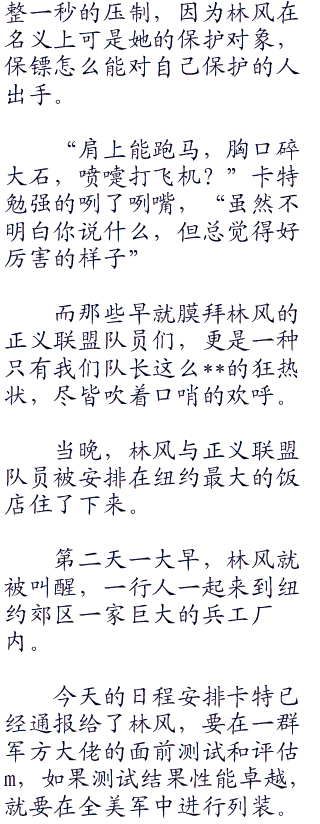 整一秒的压制，因为林风在
名义上可是她的保护对象，
保镖怎么能对自己保护的人
出手。
“肩上能跑马，胸口碎
大石，喷嚏打飞机？”卡特
勉强的咧了咧嘴，“虽然不
明白你说什么，但总觉得好
厉害的样子”
而那些早就膜拜林风的
正义联盟队员们，更是一种
只有我们队长这么**的狂热
状，尽皆吹着口哨的欢呼。
当晚，林风与正义联盟
队员被安排在纽约最大的饭
店住了下来。
第二天一大早，林风就
被叫醒，一行人一起来到纽
约郊区一家巨大的兵工厂
内。
今天的日程安排卡特已
经通报给了林风，要在一群
军方大佬的面前测试和评估
m，如果测试结果性能卓越，
就要在全美军中进行列装。